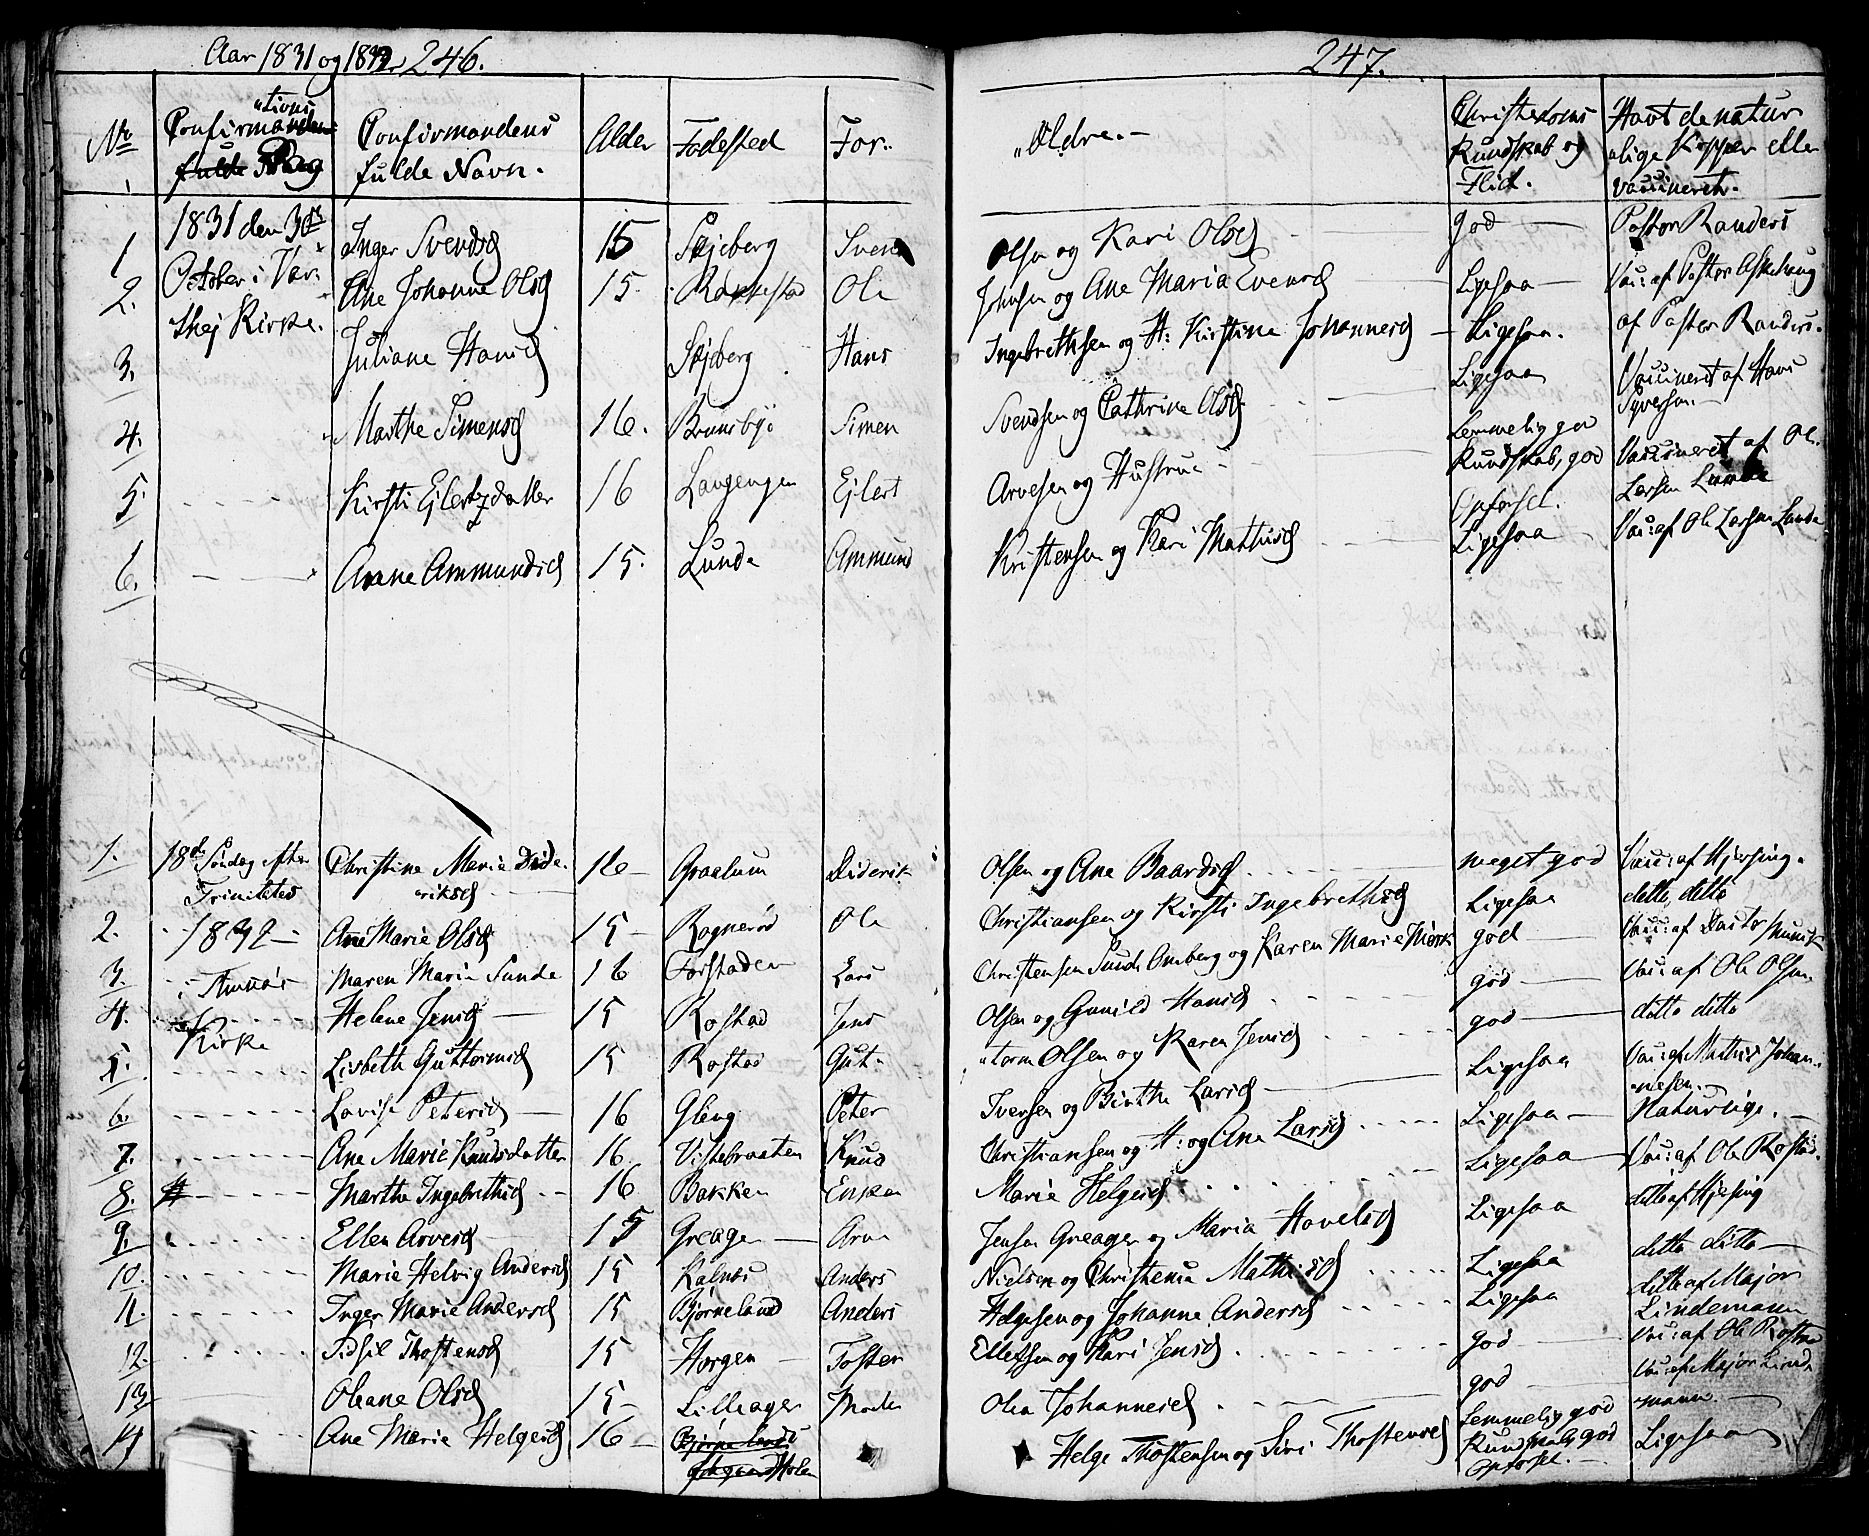 Aar 1831 og 1832. 246.
247.
No
Confirmations
Dag
Confirmandens
fulde Navn.
Alder
Fødested
For-
"ældre.-
Christendoms
Kundskab og
Flid.
Havt de natur
"lige Kopper eller
vaccineret.
1 1831 den 30te Inger Svendsd 15 Skjeberg Svend Olsen og Kari Olsd god Pastor Randers
2. October i Var- Ane Johanne Olsd 15. Rakkestad Ole Johnsen og Ane Maria Evensd Ligesaa Vacc: af Pastor Askehoug
3. thej Kirke. Juliane Hansd Skjeberg Hans Ingebrethsen og H: Kirstine Johannesd Ligesaa. af Pastor Randers.
4. Marthe Simensd 16. Brunsbye Simen Svendsen og Cathrine Olsd. Ligesaa Vaccineret af Hans
Syversen.
5. Kirsti Ejlertzdatter 16 Langengen Ejlert Arvesen og Hustrue Temmelig god
Kundskab, god
Opførsel. Vaccineret af Ole
Larsen Lunde
6. Anne Ammundsd 15. Lunde Ammund Kristensen og Kari Mathisd Ligesaa Vacc: af Ole Larsen Lunde
1. 18de Søndag efter Christine Marie Dide- 16 Graalum Diderik Olsen og Ane Baardsd meget god Vacc: af Hjersing
Trinitetes "riksd
2. 1832 Ane Marie Olsd 15 Rognerød Ole Christiansen og Kirsti Ingebrethsd Ligesaa ditto, ditto
3. i Tunøe Maren Marie Sunde 16 Lars Christensen Sunde og Karen Marie god Vacc: af
4. Kirke Helene Jensd 15 Rostad Jens Olsen og Gunild Hansd god Vacc: af Ole Olsen
5. Lisbeth Guttormsd 15 Rostad Gut- "torm Olsen og Karen Jensd god ditto ditto
6. Lovise Petersd 16 Gleng Peter Iversen og Birthe Larsd Ligesaa Vacc: af Mathis Johan-
"nesen.
7. Ane Marie Knudsdatter 16 Vistebraaten Knud Christiansen og H: og Ane Larsd Ligesaa Naturlige.
8. Marthe Ingebrethsd 16 Bakken Enken Marie Helgesd Ligesaa Vacc: af Ole Rostad.
9. Ellen Arvesd 15 Greager Arve Jensen Greager og Maria Hovelsd Ligesaa ditto af Hjersing
10. Marie Helvig Andersd 15 Kalnes Anders Nielsen og Christense Mathisd Ligesaa ditto ditto
11. Inger Marie Andersd 15 Bjørneland Anders Helgesen og Johanne Andersd Ligesaa ditto af Major
Lindemann
12. Sidsil Thostensd 15 Horgen Toster Ellefsen og Kari Jensd god Vacc: af Ole Rostad
13 Oleane Olsd 15 Lilleager Moder Olea Johannesd god Vacc: af Major Linde
mann.
14 Ane Marie Helgesd 16 Bjørneland Holen Helge Thostensen og Siri Thostensd Temmelig god
Kundskab, god
Opførsel. Ligesaa